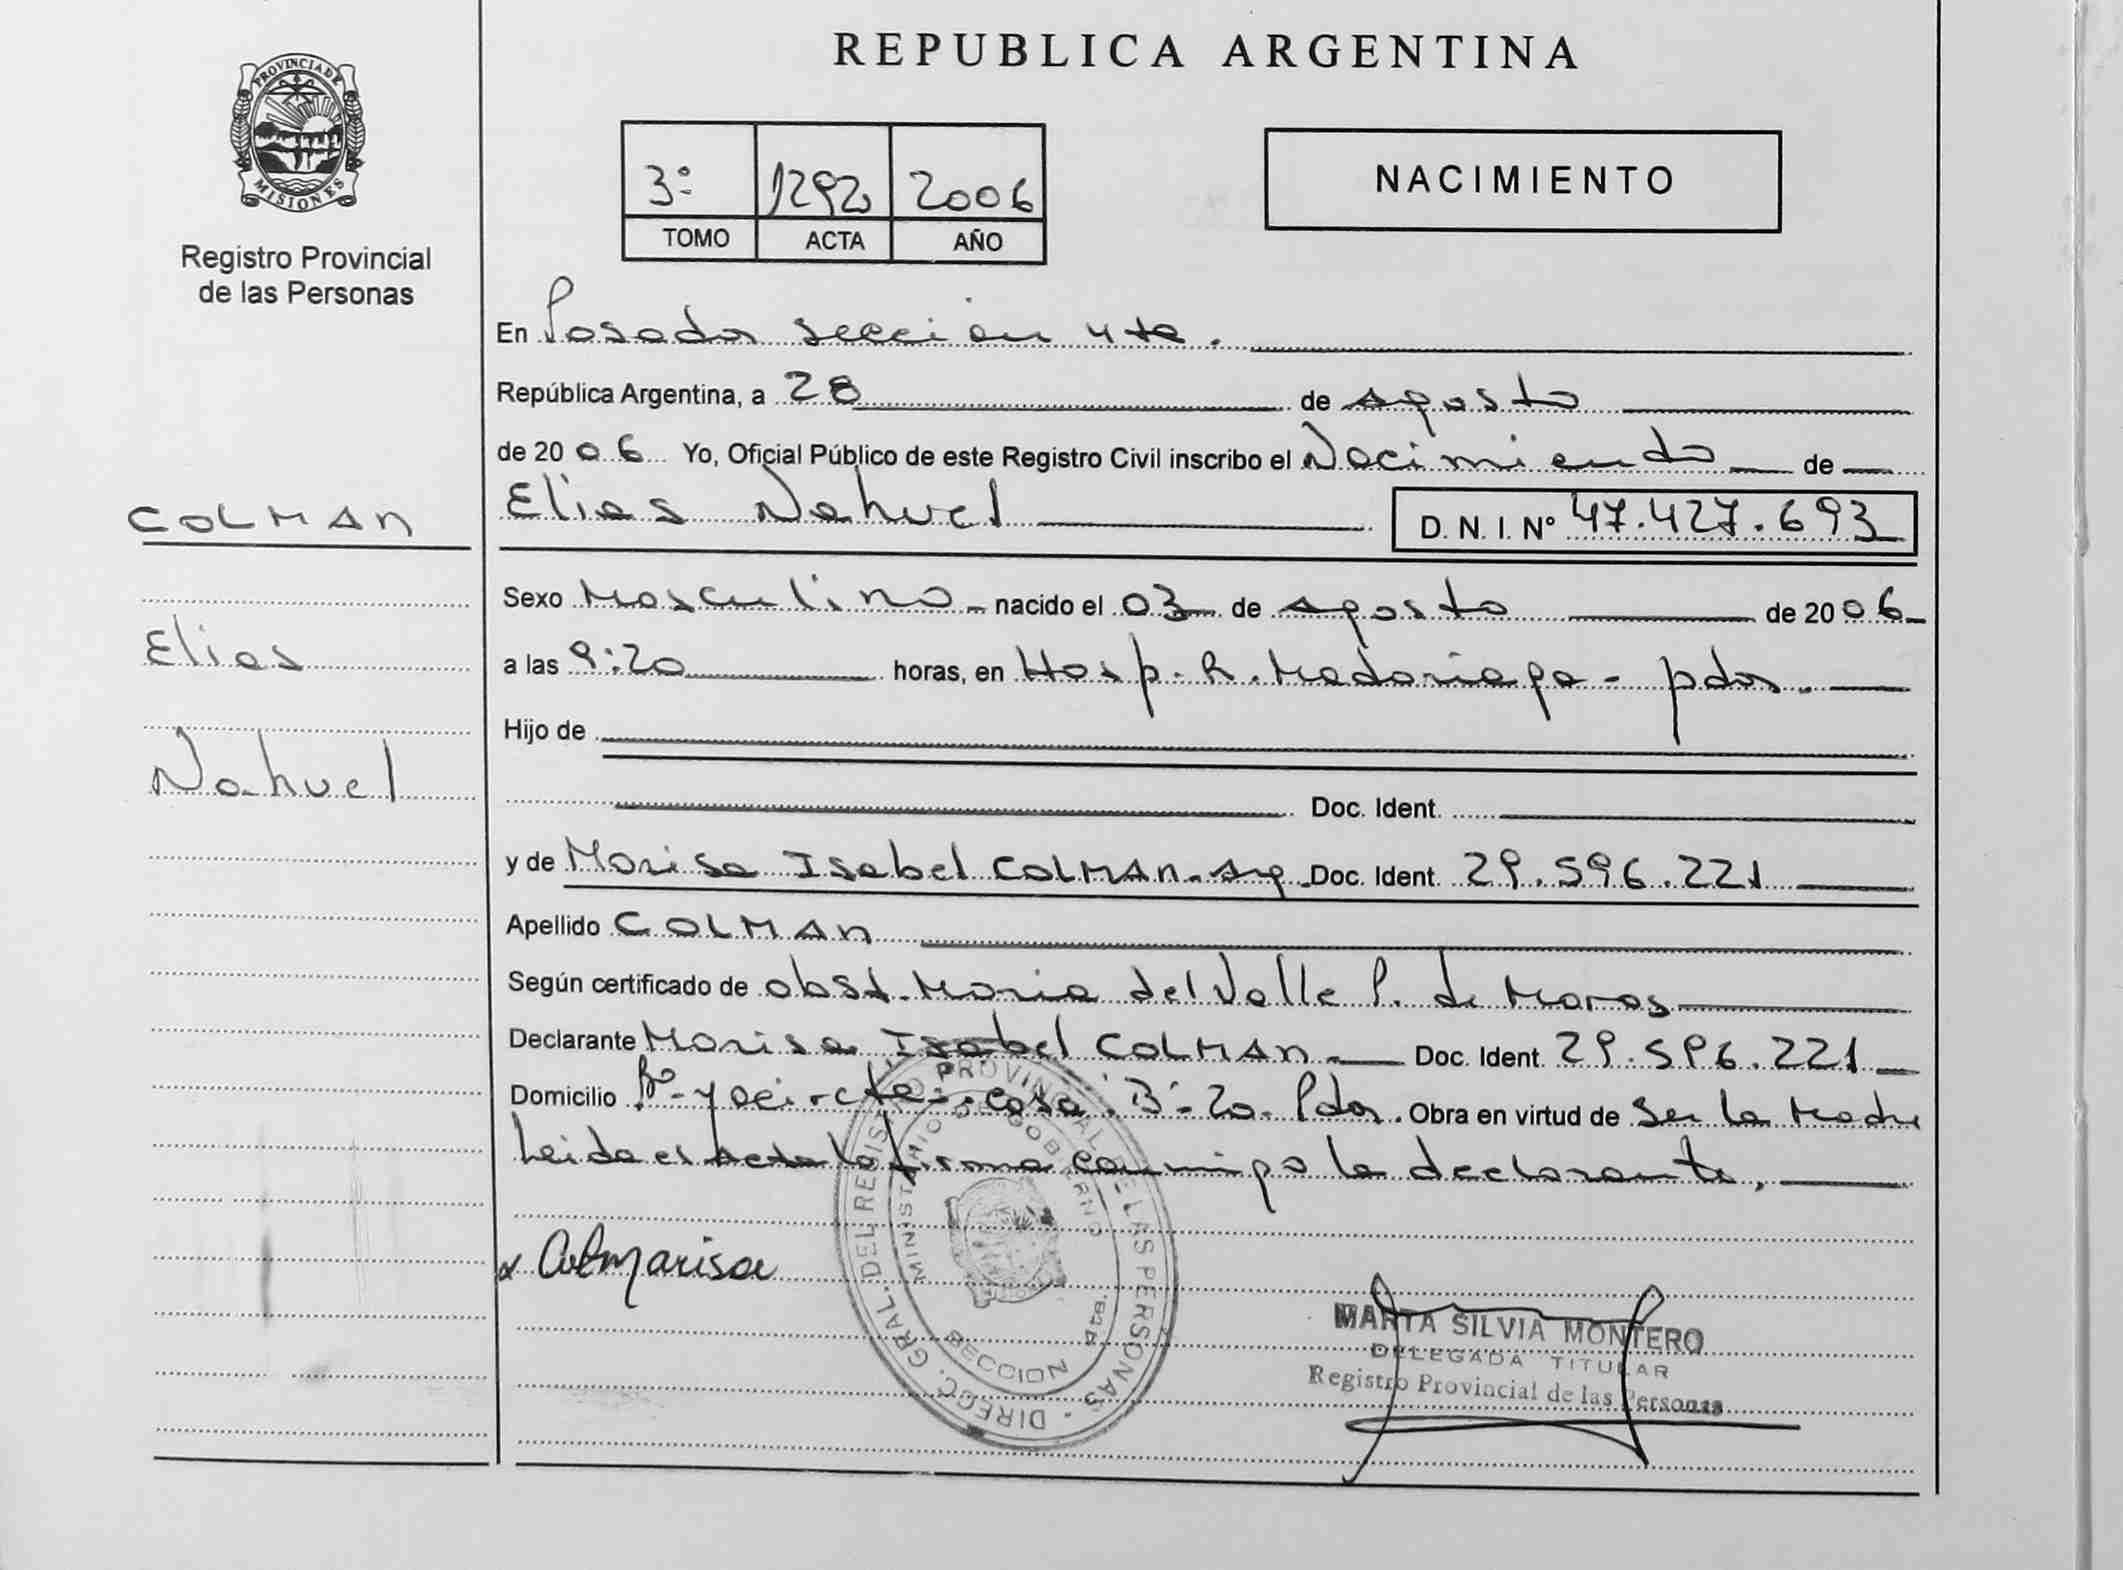 REPUBLICA ARGENTINA
PROVINCIA DE
MISIONES
Registro Provincial
de las Personas
3º 1292 2006
TOMO ACTA AÑO
NACIMIENTO
En Posadas sección 4ta.
República Argentina, a 28 de Agosto
de 20 06 Yo, Oficial Público de este Registro Civil inscribo el Nacimiento de
Elias Nahuel D. N. I. Nº 47.427.693
COLMAN
Elias
Nahuel
Sexo Masculino nacido el 03 de Agosto de 20 06
a las 9:20 horas, en Hosp. R. Madariaga - pdas.
Hijo de
Doc. Ident.
y de Marisa Isabel COLMAN - Arg. Doc. Ident. 29.596.221
Apellido COLMAN
Según certificado de obst. Maria del Valle P. de Maras
Declarante Marisa Isabel COLMAN Doc. Ident. 29.596.221
Domicilio Bº casa "B" 20 - Pdas. Obra en virtud de ser la Madre
Leida el Acta la firma conmigo la declarante.
DIRECC. GRAL. DEL REGISTRO PROVINCIAL DE LAS PERSONAS
MINISTERIO DE GOBIERNO
SECCION 4ta.
MARTA SILVIA MONTERO
DELEGADA TITULAR
Registro Provincial de las Personas